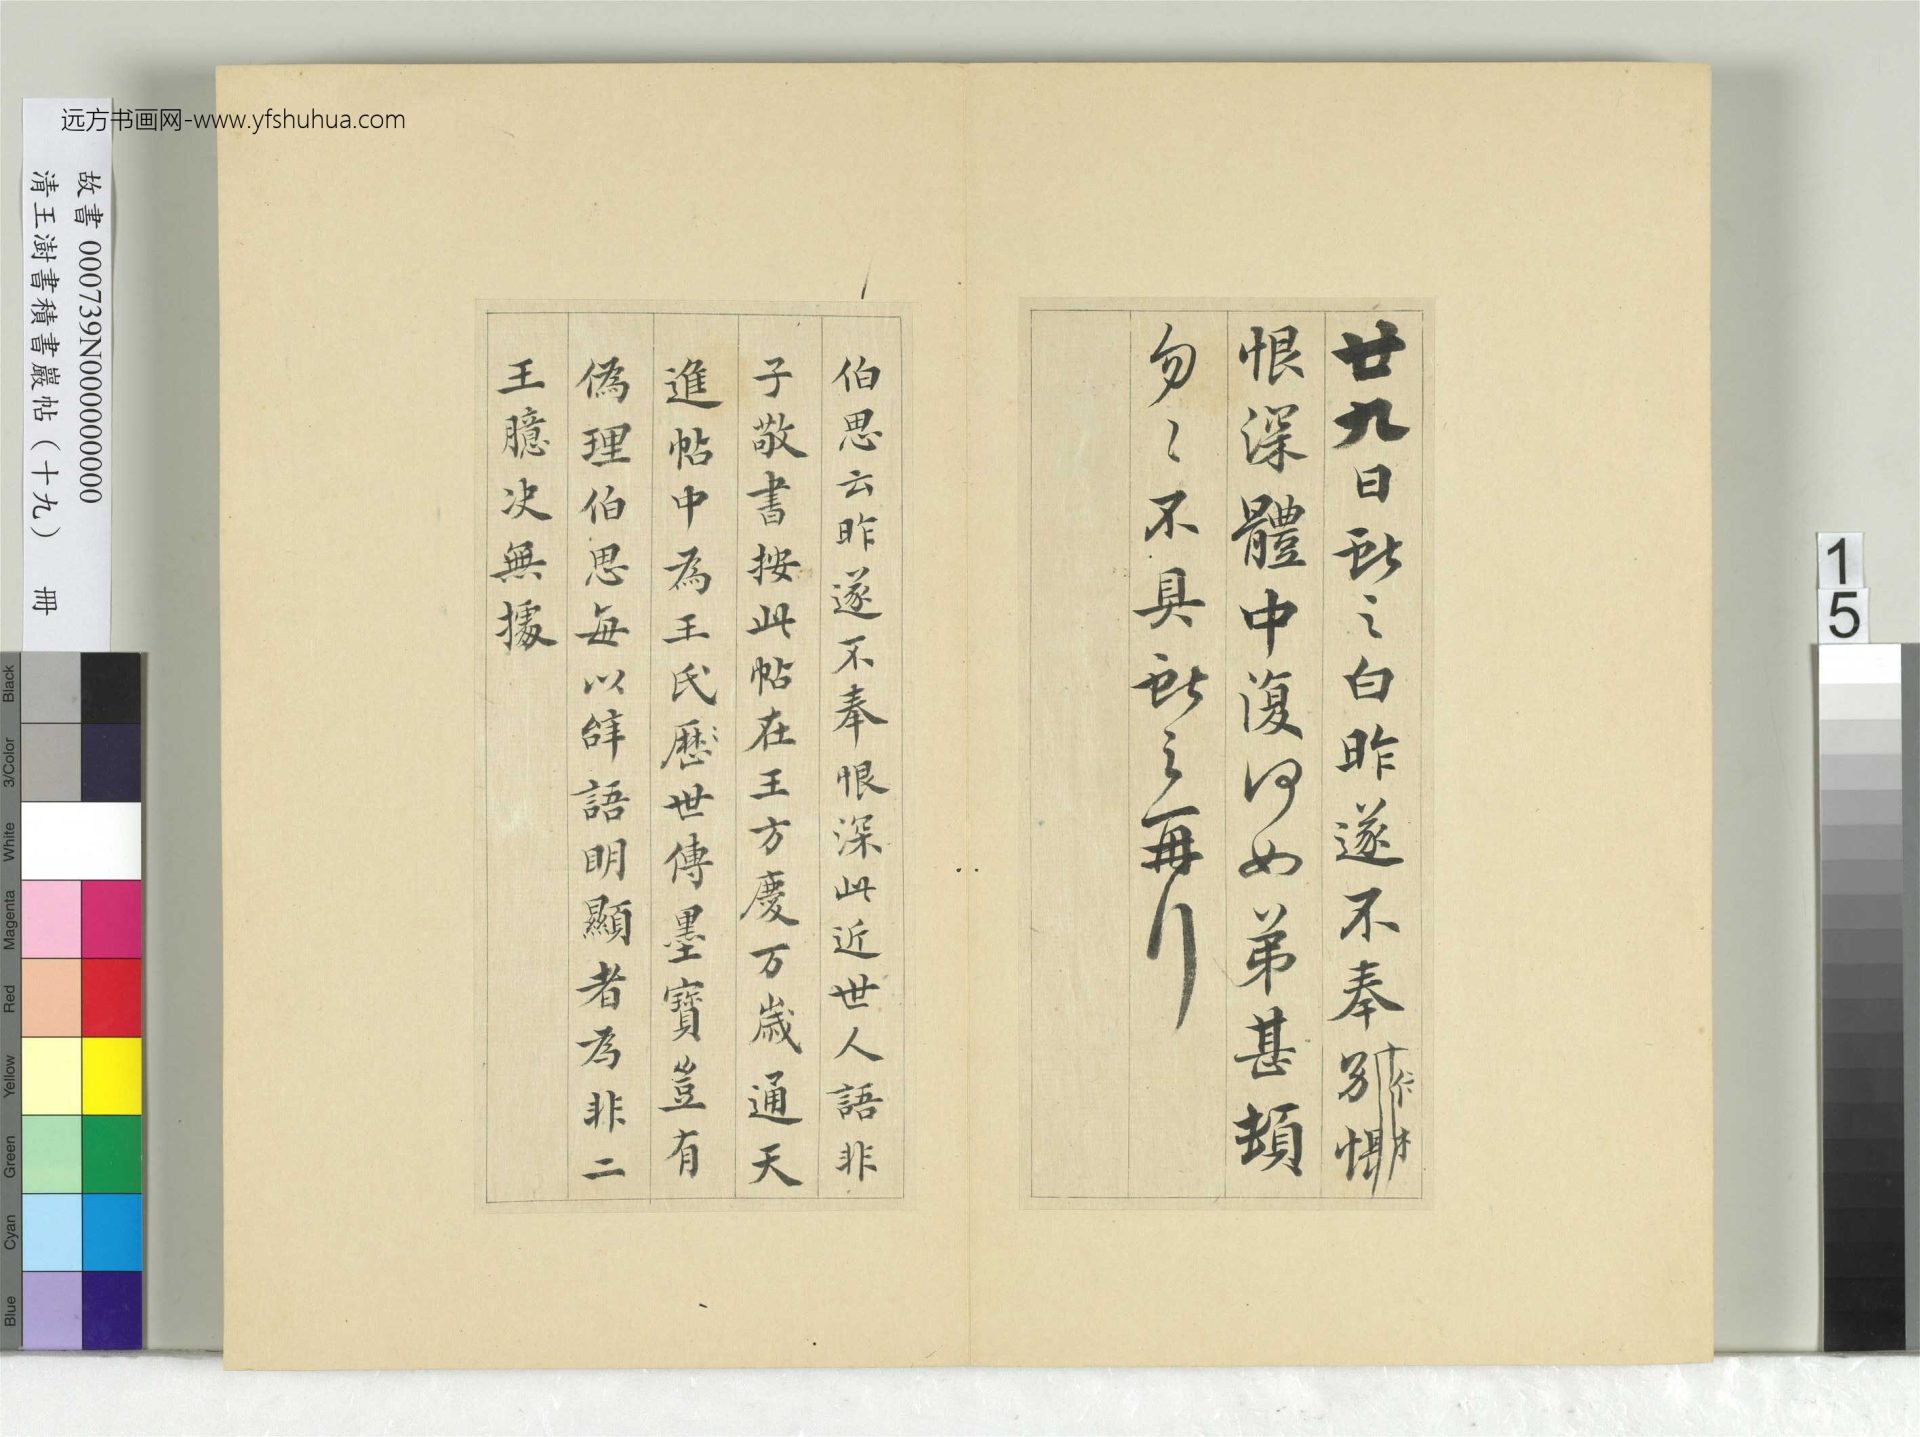 远方书画网-www.yfshuhua.com
故書 000739N000000000
清王澍書積書巖帖（十九） 冊
廿九日獻之白昨遂不奉別悵
恨深體中復何如弟甚頓
勿〻不具獻之再行
伯思云昨遂不奉恨深此近世人語非
子敬書按此帖在王方慶万歳通天
進帖中為王氏歷世傳墨寶豈有
偽理伯思每以辞語明顯者為非二
王臆决無據
1
5
Black
3/Color
White
Magenta
Red
Yellow
Green
Cyan
Blue